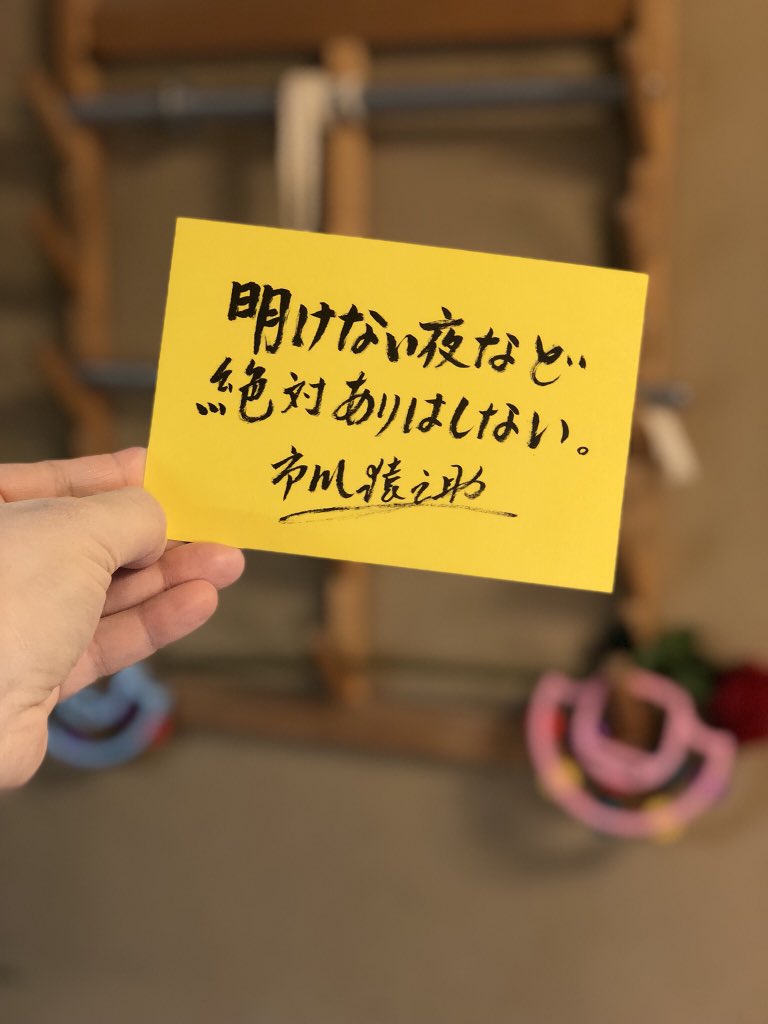 明けない夜など
絶対ありはしない。
市川猿之助